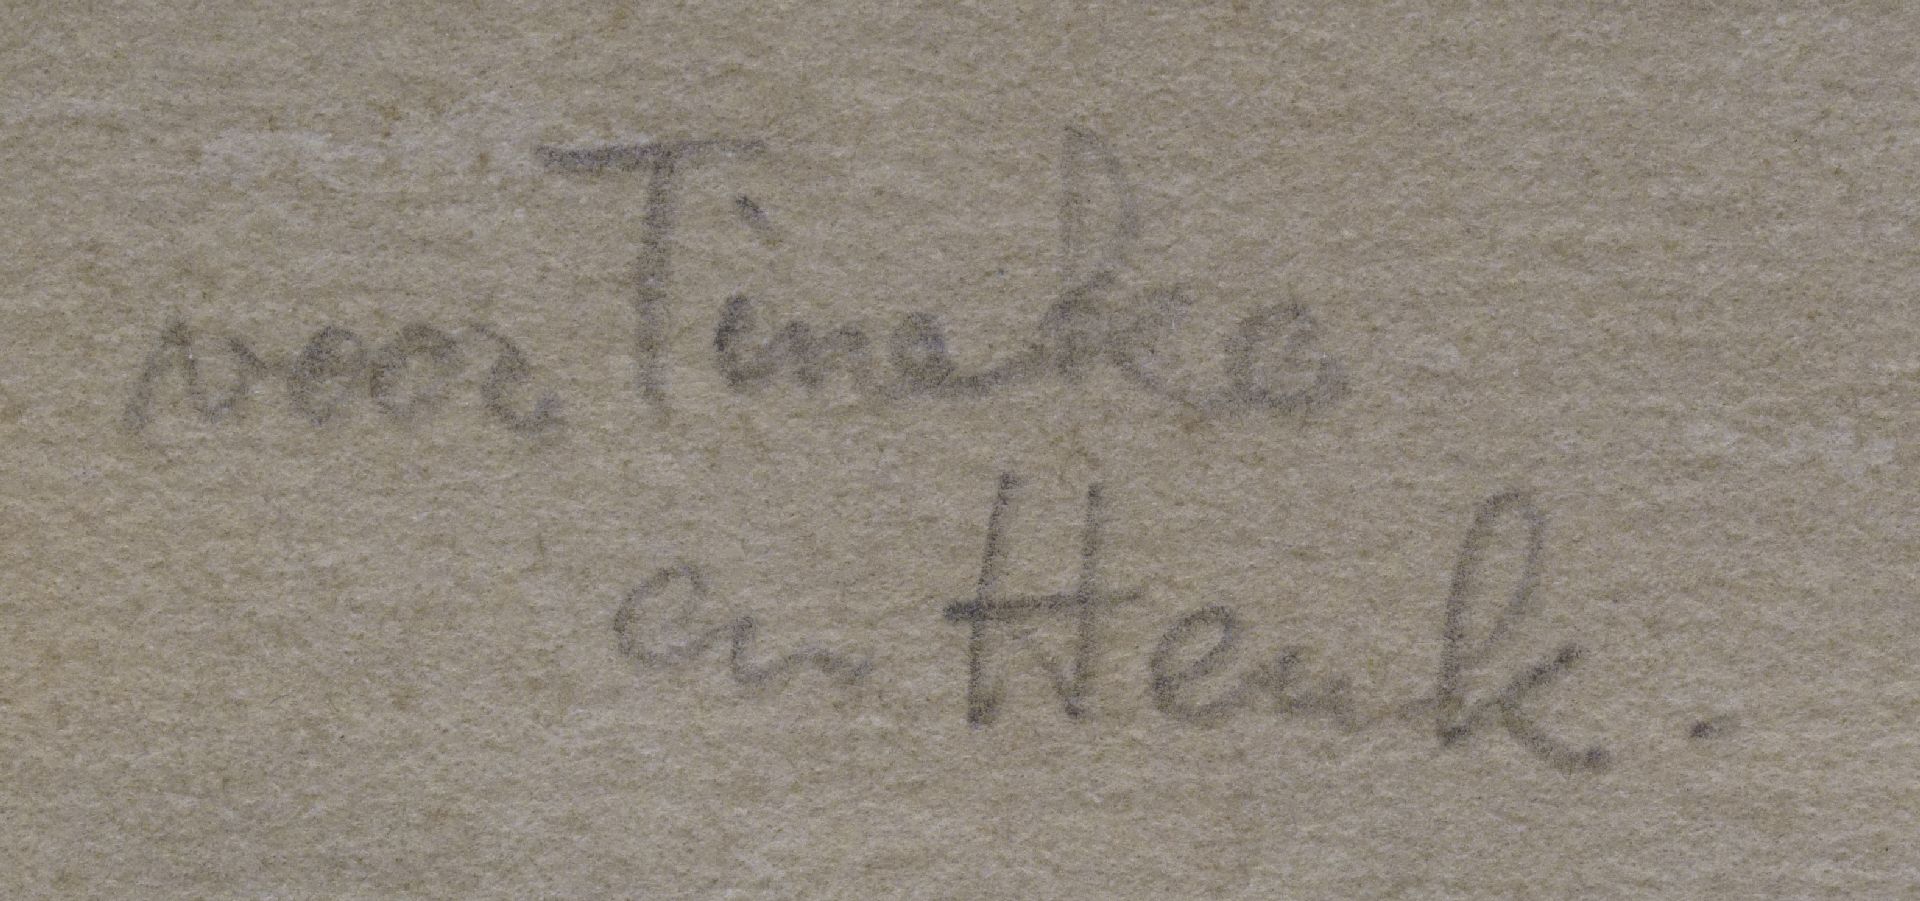 voor Tineke
en Henk.